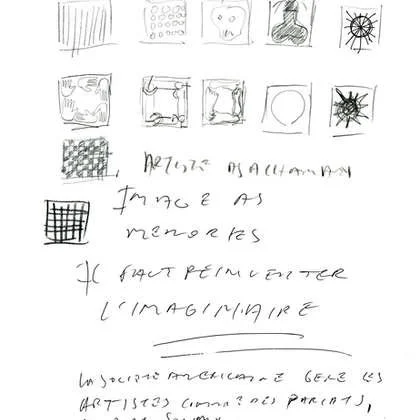 ARTISTE AS A CHAMAN
IMAGE AS
MEMORIES
IL FAUT REINVENTER
L'IMAGINAIRE
LA SOCIETE AMERICAINE GERE LES
ARTISTES COMME DES PARIAS,